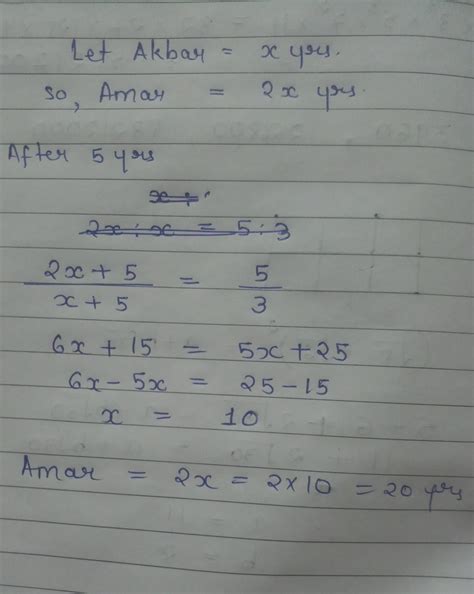 Let Akbar = x yrs.
so, Amar = 2x yrs.
After 5 yrs
x +
2x : x = 5 : 3
2x + 5 / x + 5 = 5 / 3
6x + 15 = 5x + 25
6x - 5x = 25 - 15
x = 10
Amar = 2x = 2 × 10 = 20 yrs